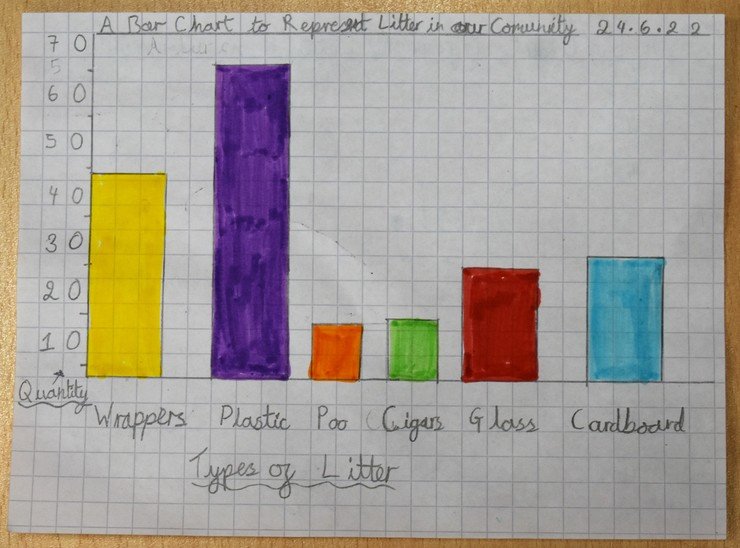 A Bar Chart to Represent Litter in our Comunity 24.6.22
70
5
60
50
40
30
20
10
Quantity
Wrappers Plastic Poo Cigars Glass Cardboard
Types of Litter